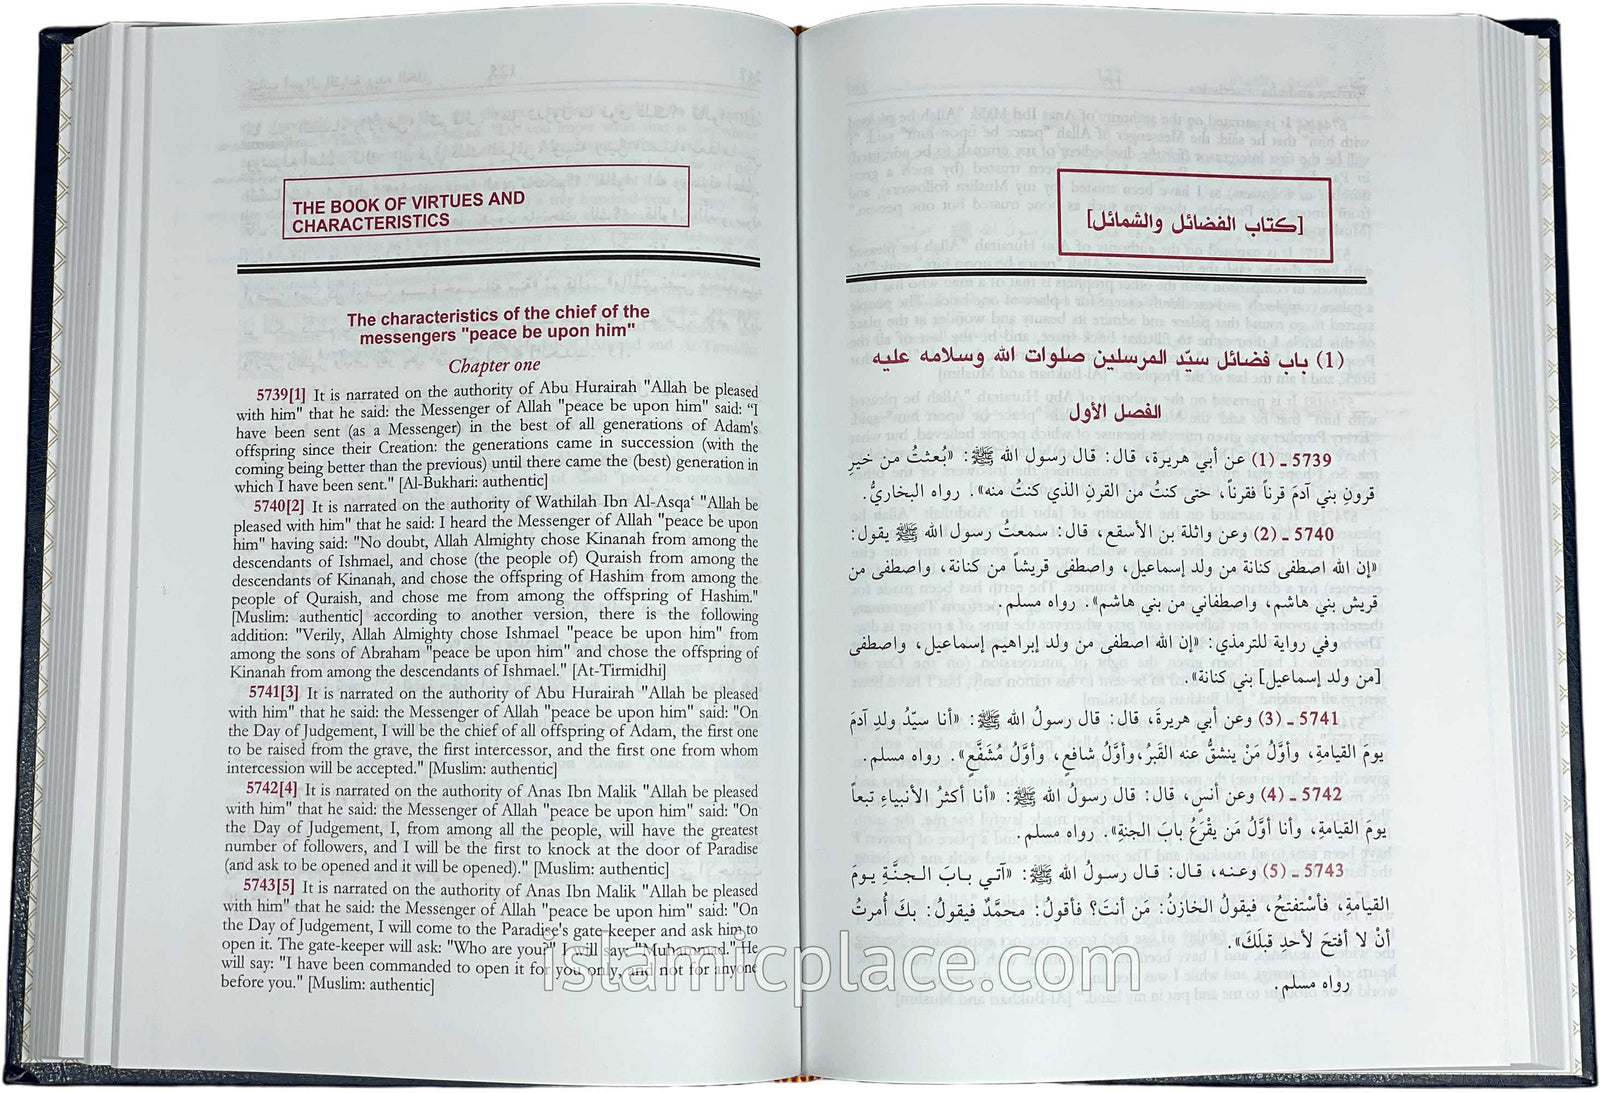 THE BOOK OF VIRTUES AND
CHARACTERISTICS
The characteristics of the chief of the
messengers "peace be upon him"
Chapter one
5739[1] It is narrated on the authority of Abu Hurairah "Allah be pleased
with him" that he said: the Messenger of Allah "peace be upon him" said: “I
have been sent (as a Messenger) in the best of all generations of Adam's
offspring since their Creation: the generations came in succession (with the
coming being better than the previous) until there came the (best) generation in
which I have been sent." [Al-Bukhari: authentic]
5740[2] It is narrated on the authority of Wathilah Ibn Al-Asqa‘ "Allah be
pleased with him" that he said: I heard the Messenger of Allah "peace be upon
him" having said: "No doubt, Allah Almighty chose Kinanah from among the
descendants of Ishmael, and chose (the people of) Quraish from among the
descendants of Kinanah, and chose the offspring of Hashim from among the
people of Quraish, and chose me from among the offspring of Hashim."
[Muslim: authentic] according to another version, there is the following
addition: "Verily, Allah Almighty chose Ishmael "peace be upon him" from
among the sons of Abraham "peace be upon him" and chose the offspring of
Kinanah from among the descendants of Ishmael." [At-Tirmidhi]
5741[3] It is narrated on the authority of Abu Hurairah "Allah be pleased
with him" that he said: the Messenger of Allah "peace be upon him" said: "On
the Day of Judgement, I will be the chief of all offspring of Adam, the first one
to be raised from the grave, the first intercessor, and the first one from whom
intercession will be accepted." [Muslim: authentic]
5742[4] It is narrated on the authority of Anas Ibn Malik "Allah be pleased
with him" that he said: the Messenger of Allah "peace be upon him" said: "On
the Day of Judgement, I, from among all the people, will have the greatest
number of followers, and I will be the first to knock at the door of Paradise
(and ask to be opened and it will be opened)." [Muslim: authentic]
5743[5] It is narrated on the authority of Anas Ibn Malik "Allah be pleased
with him" that he said: the Messenger of Allah "peace be upon him" said: "On
the Day of Judgement, I will come to the Paradise's gate-keeper and ask him to
open it. The gate-keeper will ask: "Who are you?" I will say: "Muhammad." He
will say: "I have been commanded to open it for you only, and not for anyone
before you." [Muslim: authentic]
[كتاب الفضائل والشمائل]
(1) باب فضائل سيّد المرسلين صلوات الله وسلامه عليه
الفصل الأول
5739 ـ (1) عن أبي هريرة، قال: قال رسول الله ﷺ: «بُعثتُ من خيرِ
قرونِ بني آدمَ قرناً فقرناً، حتى كنتُ من القرنِ الذي كنتُ منه». رواه البخاريُّ.
5740 ـ (2) وعن واثلة بن الأسقع، قال: سمعتُ رسول الله ﷺ يقول:
«إن الله اصطفى كنانة من ولد إسماعيل، واصطفى قريشاً من كنانة، واصطفى من
قريش بني هاشم، واصطفاني من بني هاشم». رواه مسلم.
وفي رواية للترمذي: «إن الله اصطفى من ولد إبراهيم إسماعيل، واصطفى
[من ولد إسماعيل] بني كنانة».
5741 ـ (3) وعن أبي هريرةَ، قال: قال رسولُ الله ﷺ: «أنا سيّدُ ولدِ آدمَ
يومَ القيامةِ، وأوَّلُ مَنْ ينشقُّ عنه القَبرُ،وأوَّلُ شافعٍ، وأوَّلُ مُشَفَّعٍ». رواه مسلم.
5742 ـ (4) وعن أنسٍ، قال: قال رسولُ الله ﷺ: «أنا أكثرُ الأنبياءِ تبعاً
يومَ القيامةِ، وأنا أوَّلُ مَن يقْرَعُ بابَ الجنةِ». رواه مسلم.
5743 ـ (5) وعنـه، قـال: قـال رسـولُ الله ﷺ: «آتـي بـابَ الـجنَّـةِ يـومَ
القيامةِ، فأسْتفتحُ، فيقولُ الخازنُ: مَن أنتَ؟ فأقولُ: محمَّدٌ فيقولُ: بكَ أُمرتُ
أنْ لا أفتحَ لأحدٍ قبلَكَ».
رواه مسلم.
islamicplace.com